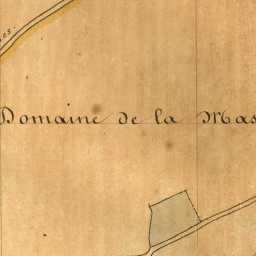 es.
Domaine de la Mas